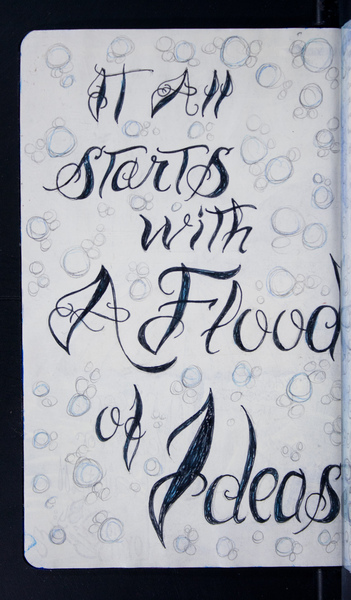 It All
starts
with
A Flood
of
Ideas